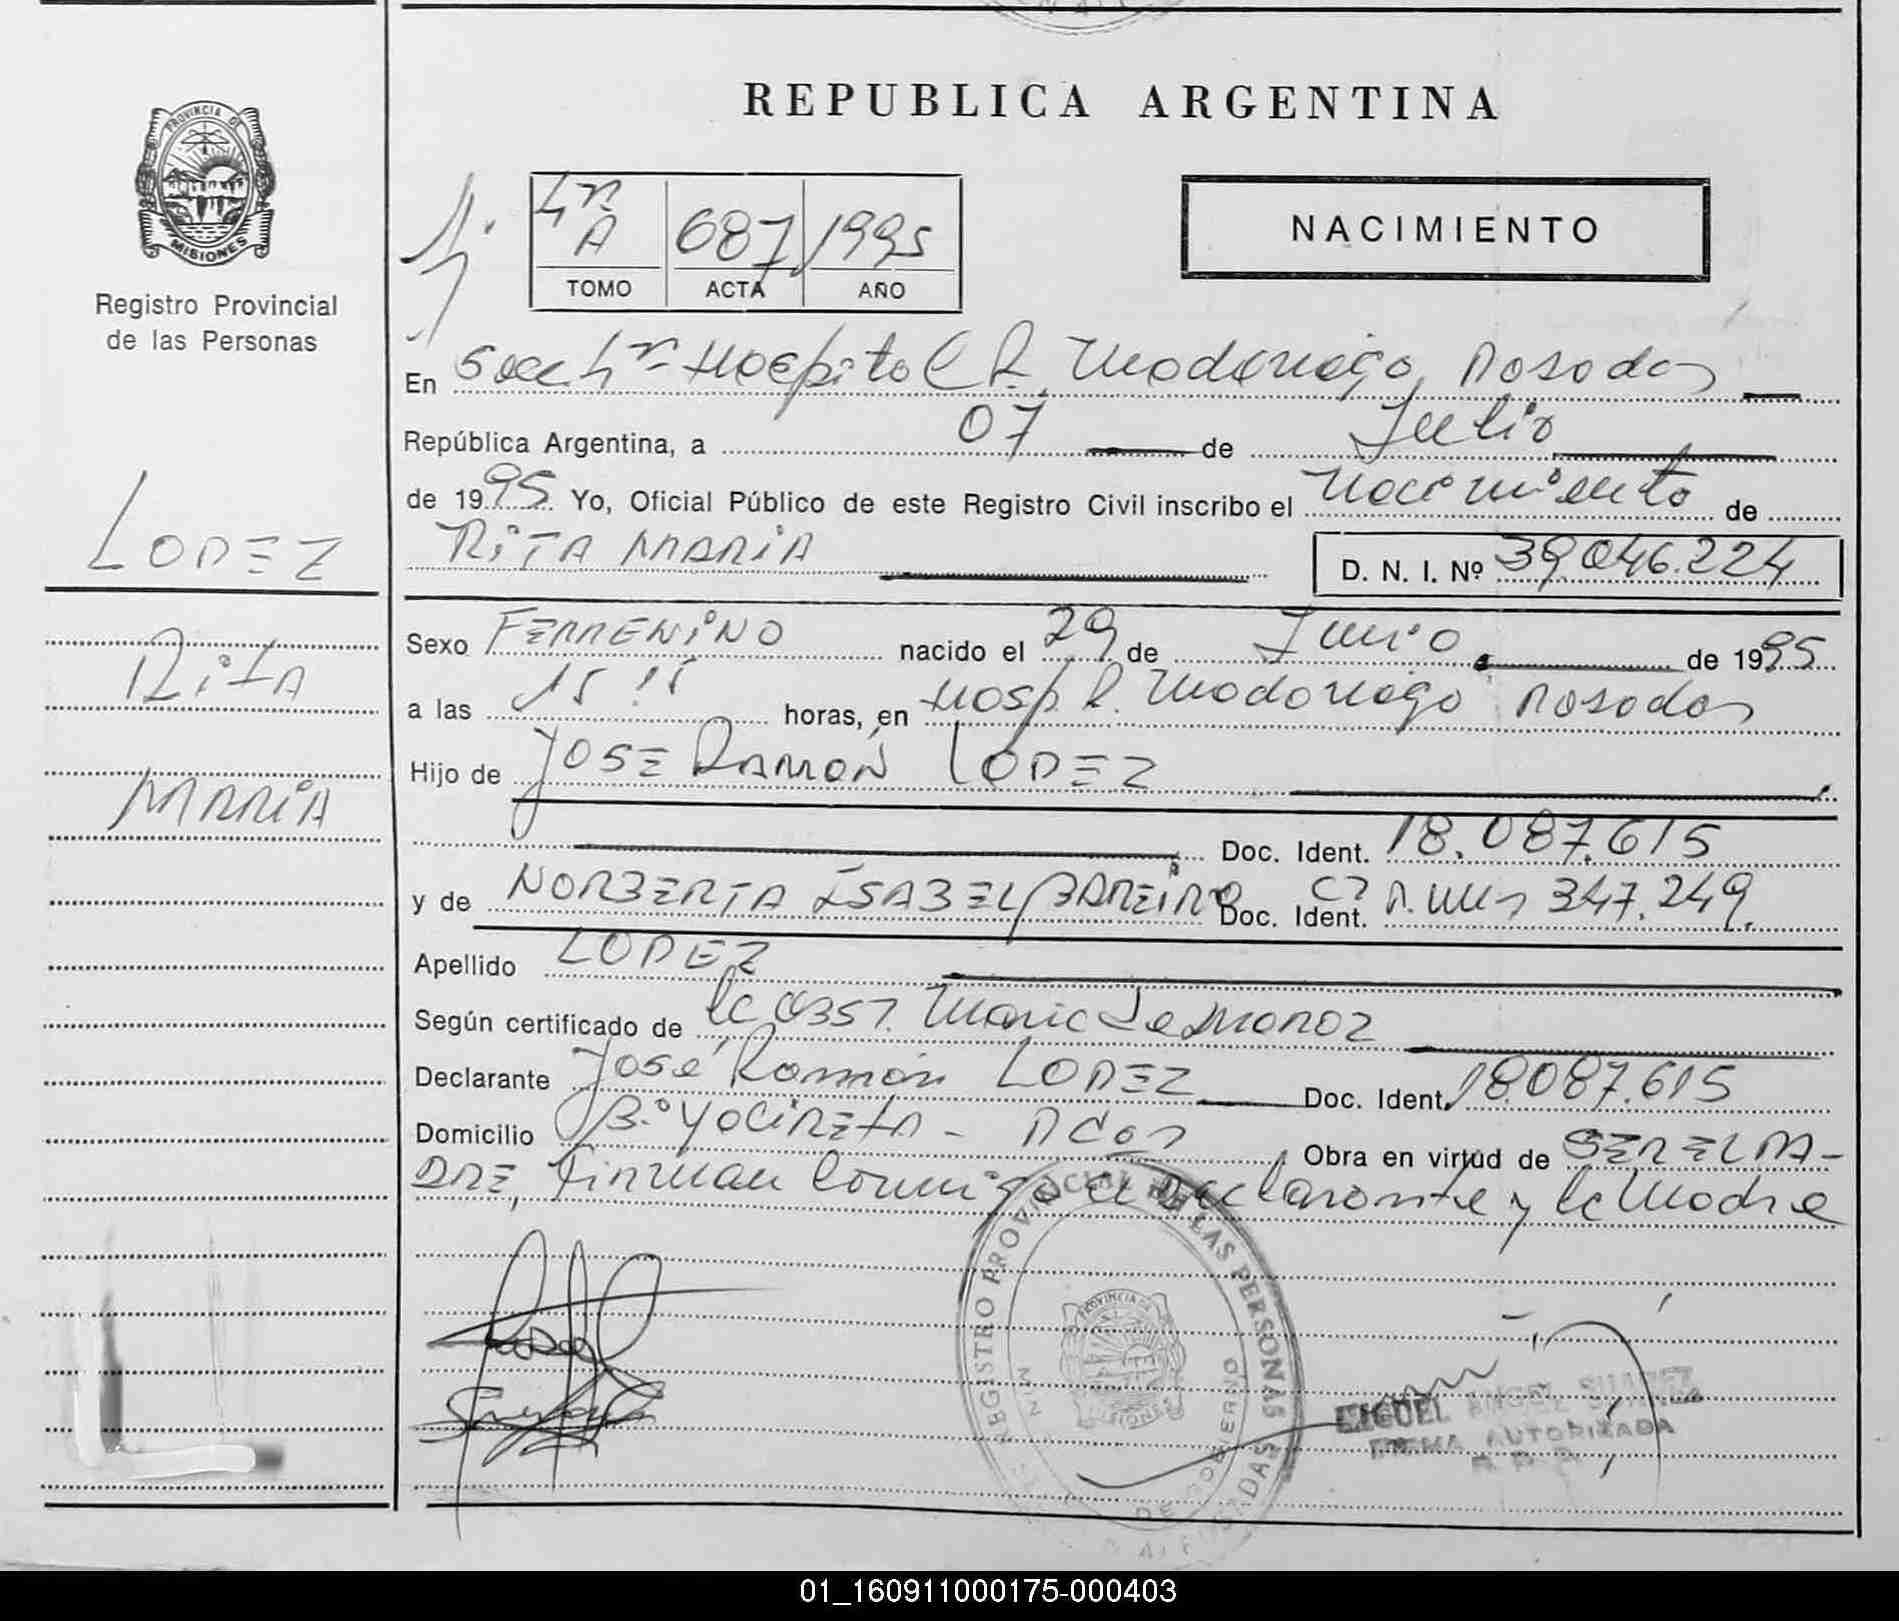 REPUBLICA ARGENTINA
PROVINCIA DE
MISIONES
Registro Provincial
de las Personas
A 687 1995
TOMO ACTA AÑO
NACIMIENTO
En Secc Hospital R. Madariaga, Posadas
República Argentina, a 07 de Julio
de 1995. Yo, Oficial Público de este Registro Civil inscribo el Nacimiento de
RITA MARIA D. N. I. Nº 39.046.224
LOPEZ
RITA
MARIA
Sexo FEMENINO nacido el 29 de Junio de 1995
a las 15 15 horas, en Hosp. R. Madariaga Posadas
Hijo de JOSE RAMÓN LOPEZ
Doc. Ident. 18.087.615
y de NORBERTA ISABEL BAREIRO Doc. Ident. 347.249.
Apellido LOPEZ
Según certificado de la Obst. Maria
Declarante José Ramón LOPEZ Doc. Ident. 18.087.615
Domicilio Bº YACIRETA - Pdas Obra en virtud de SER EL PA-
DRE, Firman conmigo el Declarante y la Madre
REGISTRO PROVINCIAL DE LAS PERSONAS
PROVINCIA DE
MISIONES
DE GOBIERNO
MIGUEL ANGEL SUAREZ
FIRMA AUTORIZADA
01_160911000175-000403